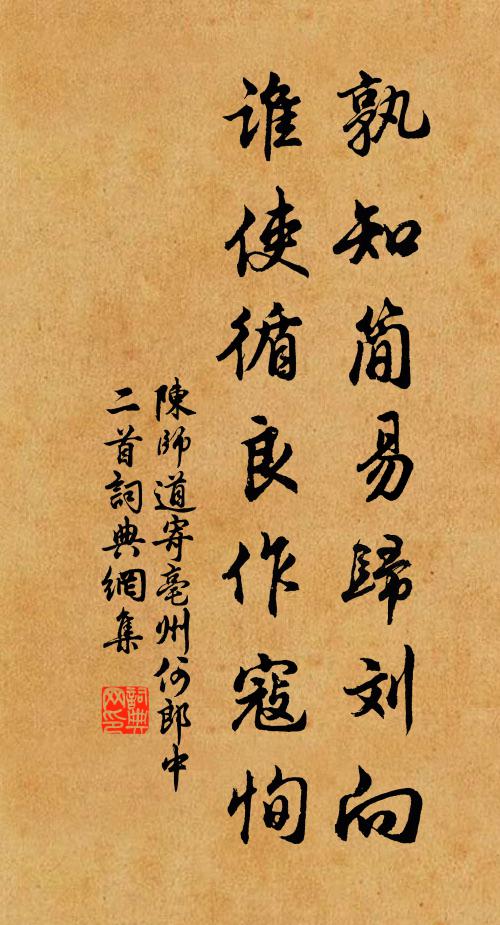 孰知简易歸刘向
谁使循良作寇恂
陳師道寄亳州何郎中
二首詞典網集
詞典
网印